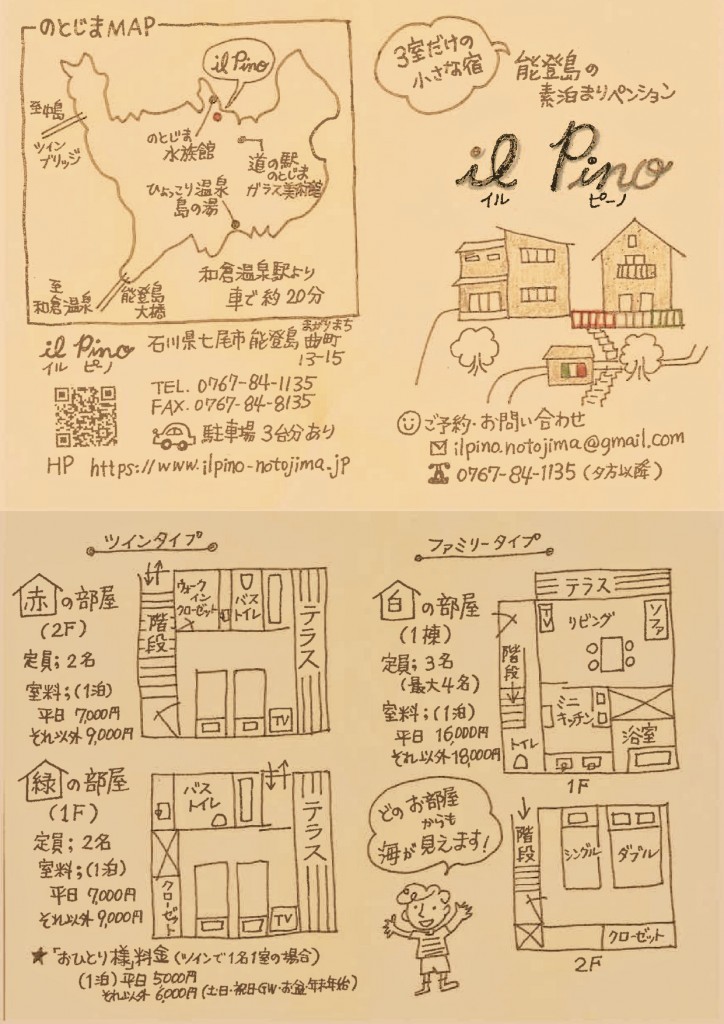 のとじまMAP
il Pino
至中島
ツイン
ブリッジ
のとじま
水族館
道の駅
のとじま
ガラス美術館
ひょっこり温泉
島の湯
至
和倉温泉
能登島
大橋
和倉温泉駅より
車で約20分
il Pino
イル ピーノ
石川県七尾市能登島曲町
まがりまち
13-15
TEL. 0767-84-1135
FAX. 0767-84-8135
駐車場3台分あり
HP https://www.ilpino-notojima.jp
3室だけの
小さな宿
能登島の
素泊まりペンション
il Pino
イル ピーノ
ご予約・お問い合わせ
ilpino.notojima@gmail.com
0767-84-1135(夕方以降)
ツインタイプ
赤の部屋
(2F)
定員;2名
室料;(1泊)
平日 7,000円
それ以外 9,000円
階段
ウォーク
イン
クローゼット
バス
トイレ
テラス
TV
緑の部屋
(1F)
定員;2名
室料;(1泊)
平日 7,000円
それ以外 9,000円
バス
トイレ
クローゼット
テラス
TV
★「おひとり様」料金(ツインで1名1室の場合)
(1泊)平日 5000円
それ以外 6,000円(土日・祝日・GW・お盆・年末年始)
ファミリータイプ
白の部屋
(1棟)
定員;3名
(最大4名)
室料;(1泊)
平日 16,000円
それ以外 18,000円
テラス
TV
リビング
ソファ
階段
ミニ
キッチン
浴室
トイレ
1F
どのお部屋
からも
海が見えます!
階段
シングル
ダブル
クローゼット
2F